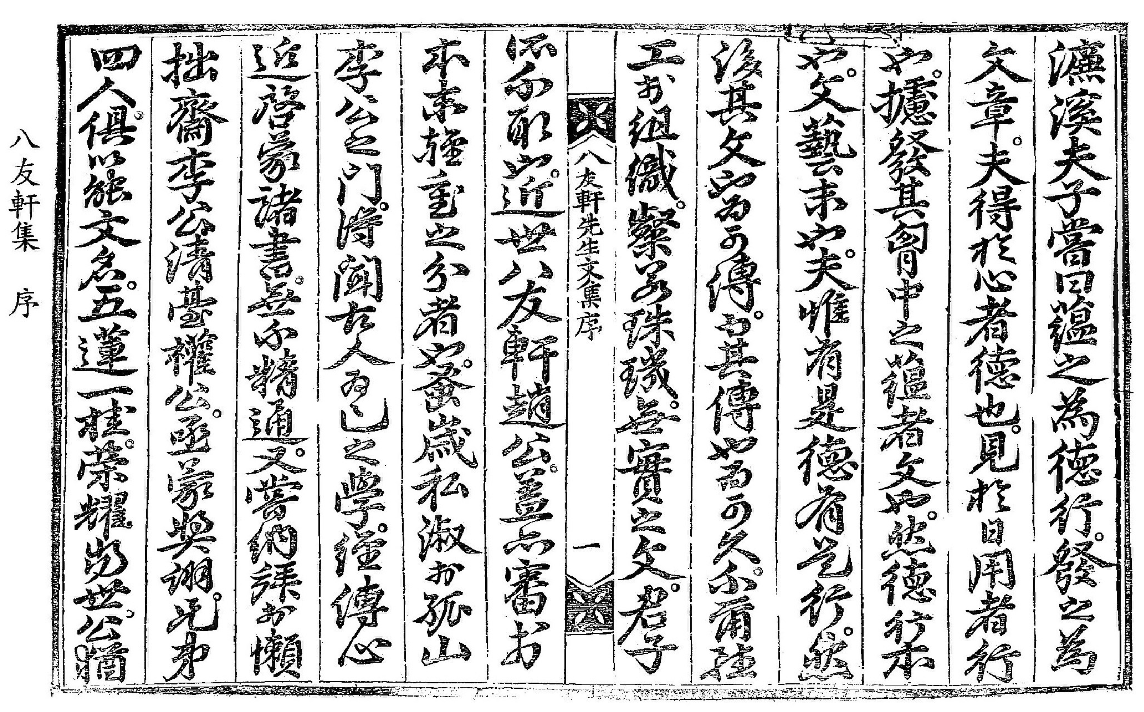 濂溪夫子嘗曰蘊之爲德行。發之爲
文章。夫得於心者德也。見於日用者行
也。攄發其胷中之蘊者文也。然德行本
也。文藝末也。夫惟有是德有是行。然
後其文也爲可傳。而其傳也爲可久。不爾雖
工於組織。粲若珠璣。無實之文。君子
八友軒先生文集序 一
所不取也。近世八友軒趙公。盖亦審於
本末輕重之分者也。蚤歲私淑於孤山
李公之門。得聞古人爲己之學。經傳心
近啓蒙諸書。無不精通。又嘗納拜於懶
拙齋李公淸臺權公。亟蒙奬詡。兄弟
四人。俱以能文名。五蓮一桂。榮耀當世。公猶
八友軒集 序